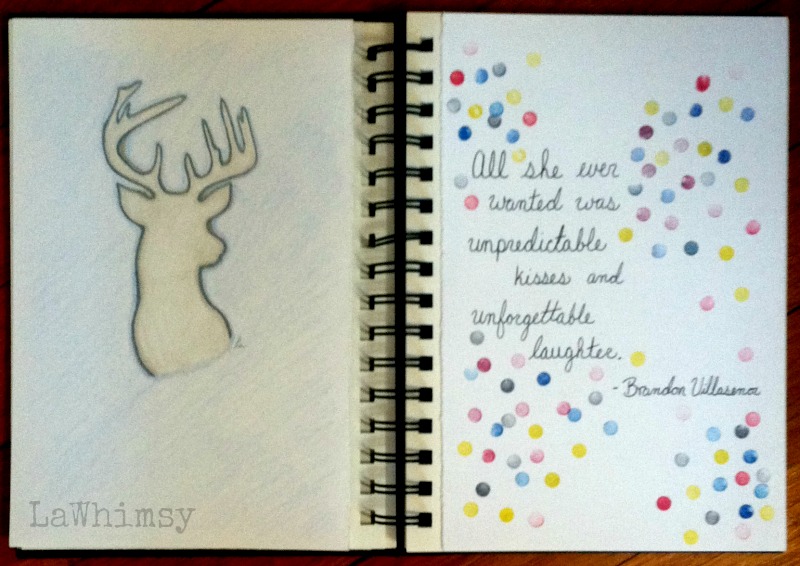 All she ever
wanted was
unpredictable
kisses and
unforgettable
laughter.
- Brandon Villasenor
LaWhimsy